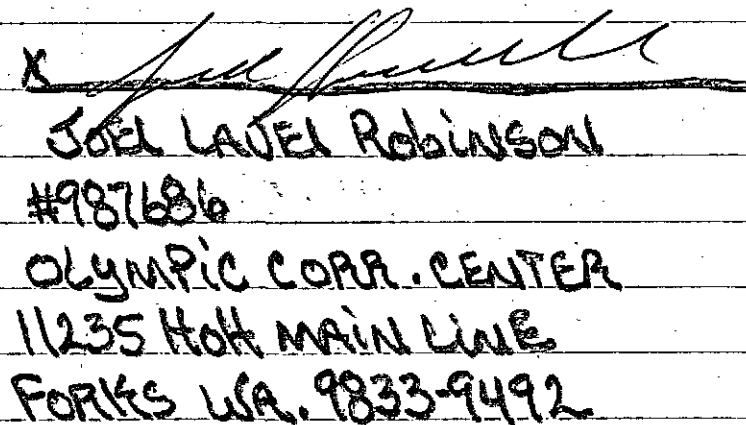 X
JOEL LAVEL ROBINSON
#987686
OLYMPIC CORR. CENTER
11235 HOH MAIN LINE
FORKS WA. 9833-9492